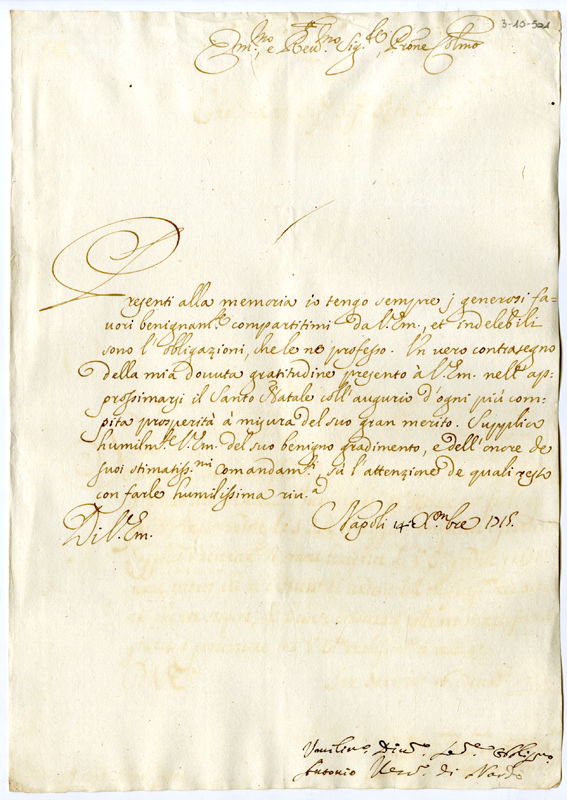 3-10-501
Em.mo, e Rev.mo Sig.re, Prone Colmo
Presenti alla memoria io tengo sempre j generosi fa=
uori benignam.te compartitimi da V. Em., et indelebili
sono l'obligazioni, che le ne professo. Un vero contrasegno
della mia douuta gratitudine presento à V. Em. nell'ap-
prossimarsi il Santo Natale coll'augurio d'ogni più com-
pita prosperità à misura del suo gran merito. Supplico
humilm.te V. Em. del suo benigno gradimento, e dell'onore de
suoi stimatiss.mi comandam.ti sù l'attenzione de quali resto
con farle humilissima riu.a
Di V. Em. Napoli 14 Xmbre 1715.
Humilmo. Diu.mo Se.re Obligmo.
Antonio Vesc.o di Nardo